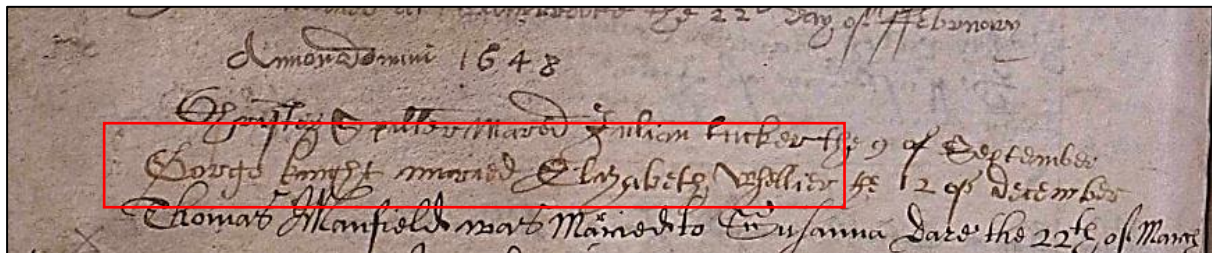 the 22th day of ffebruary
Annon Domini 1648
Spiller Mared Julian Tucker the 9 of September
Gorge knight maried Elizabeth Whellier the 12 of december
Thomas Manfield was Maried to Susanna Dare the 22th of March